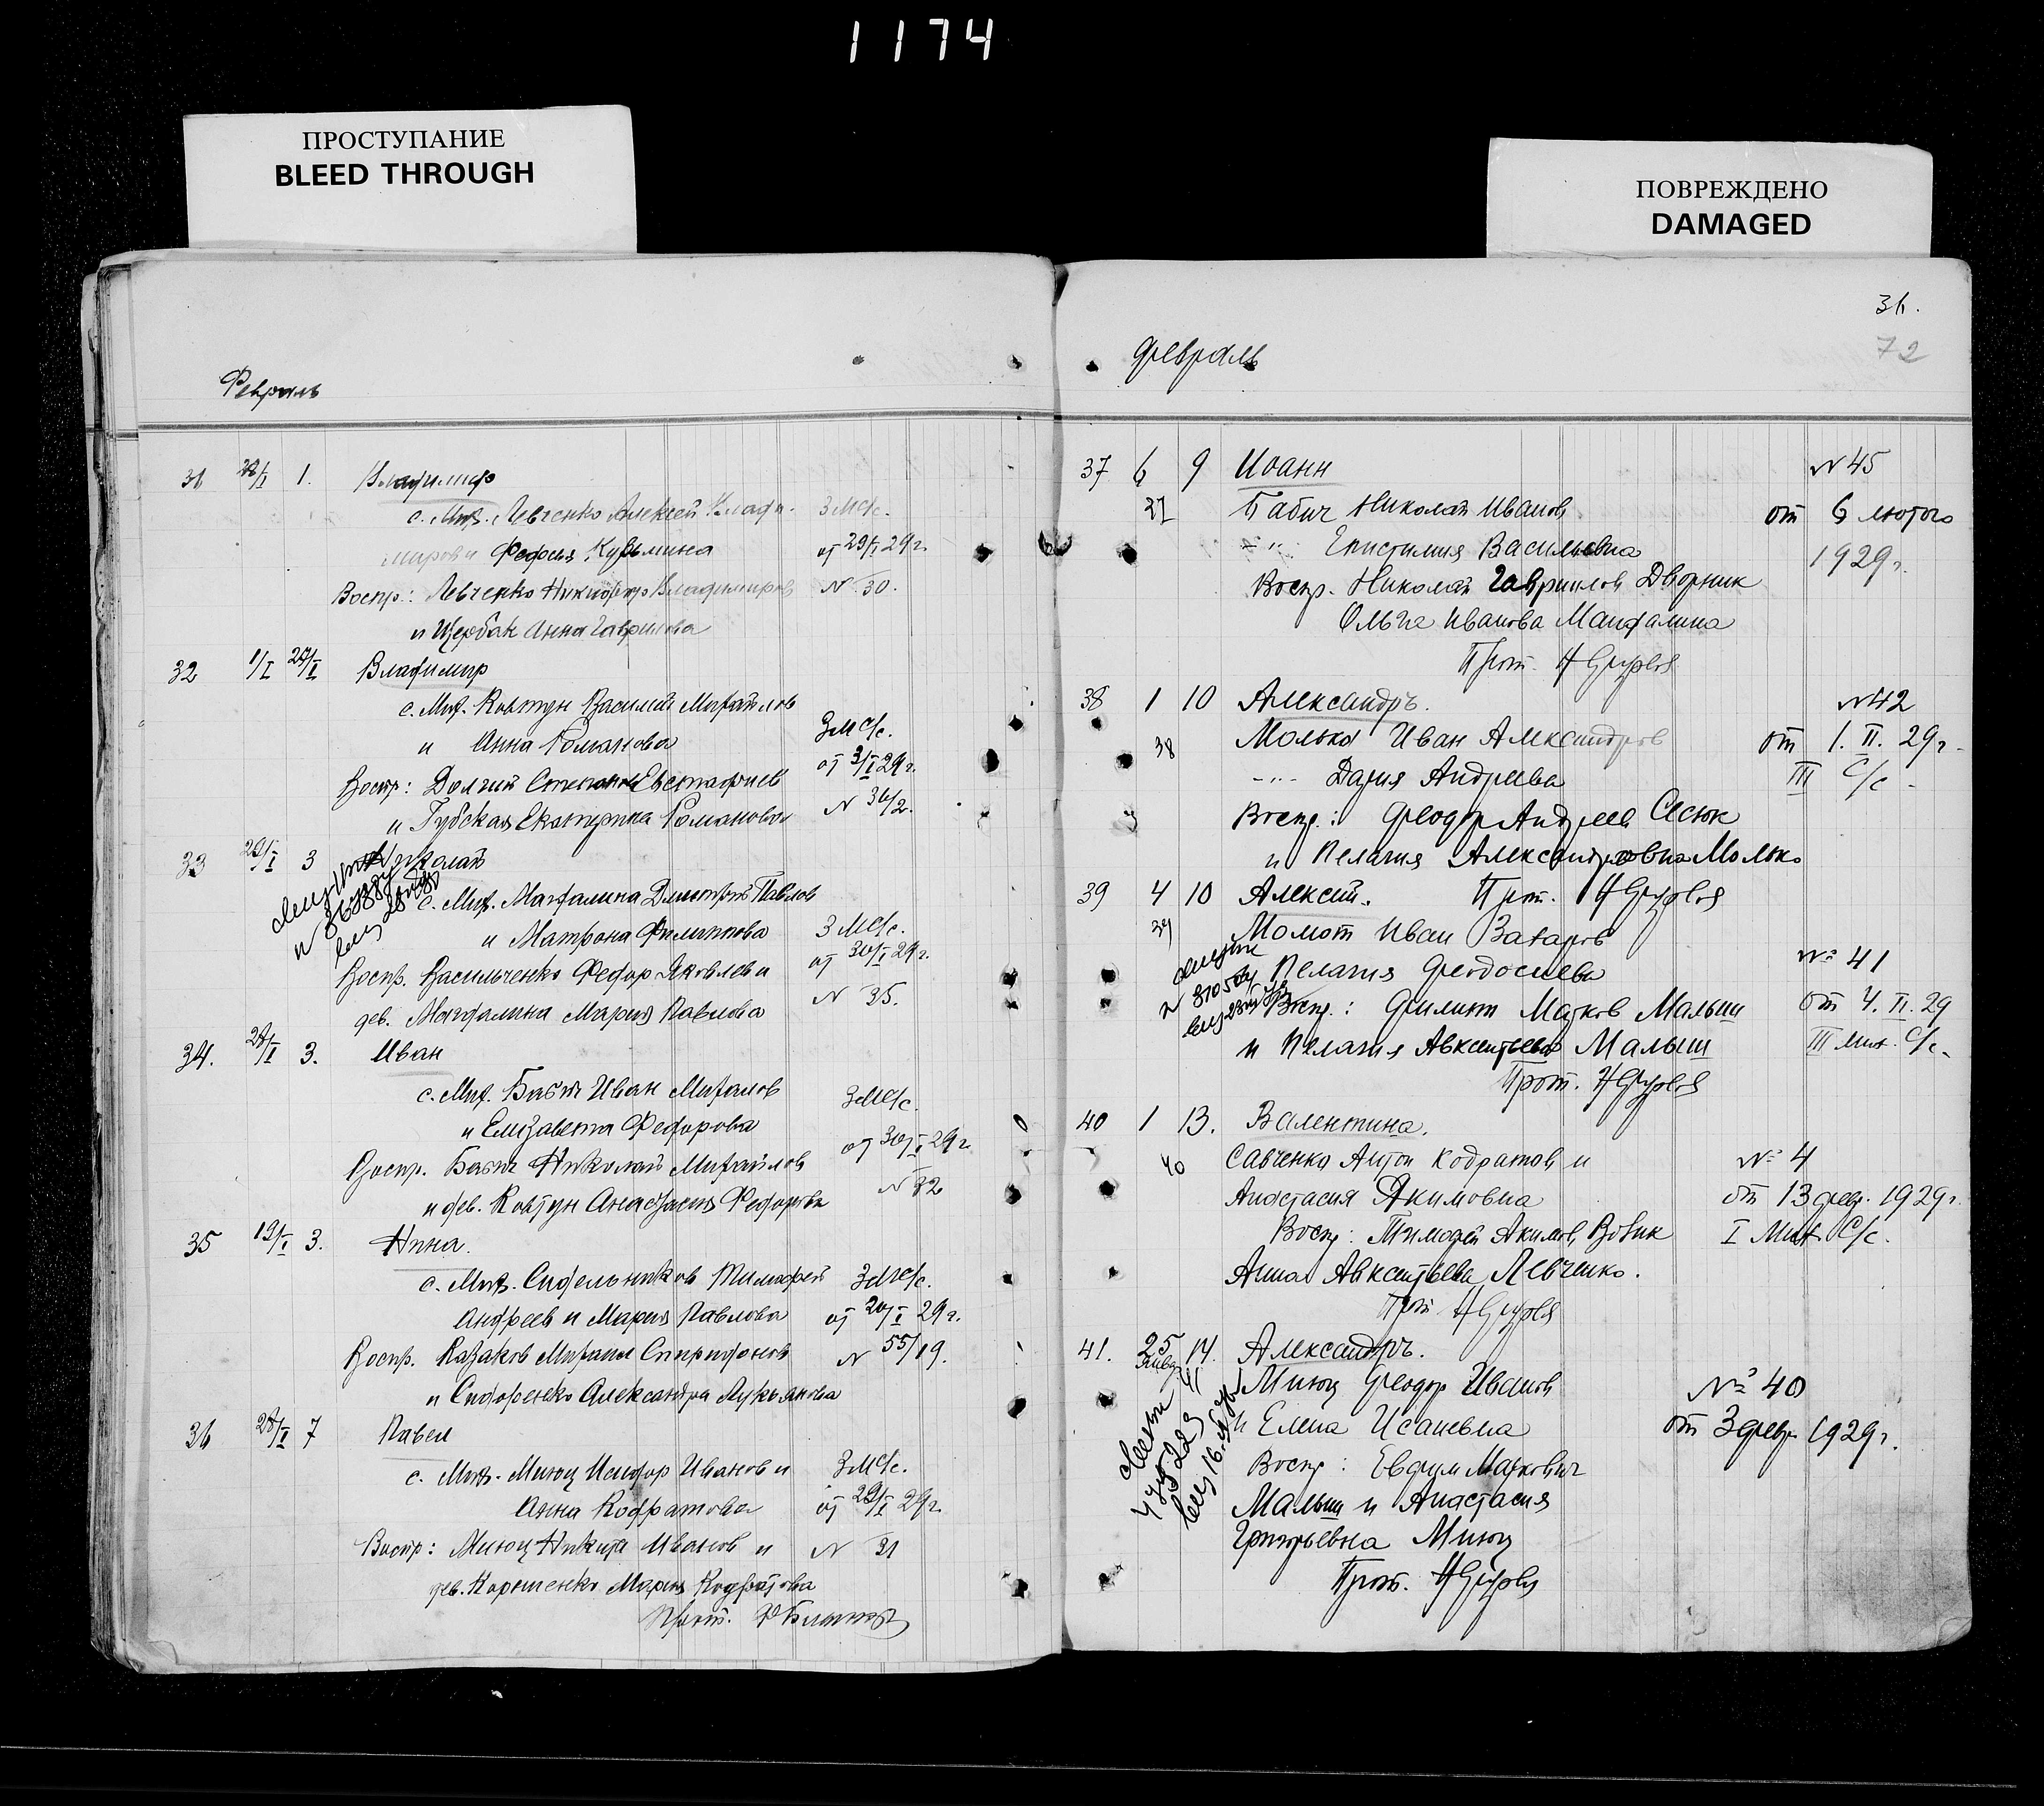 1174
ПРОСТУПАНИЕ
BLEED THROUGH
ПОВРЕЖДЕНО
DAMAGED
Февраль
31 28/I 1. Владимир
с. Мих. Левченко Алексей Влади- 3 МС/с.
миров и Федосия Кузьмина от 29/I 29 г.
Воспр: Левченко Никифор Владимиров N 30.
и Щербак Анна Гаврилова
32 1/I 27/I Владимир
с. Мих. Ковтун Василий Михайлов
и Анна Романова 3М С/с.
Воспр: Долгий Степан Евстафиев от 3/I 29 г.
и Губская Екатерина Романова N 30/2.
33 29/I 3 Николай
с. Мих. Магдалина Димитрий Павлов
и Матрона Филиппова 3 МС/с.
Воспр. Васильченко Федор Яковлев и от 30/I 29 г.
дев. Магдалина Мария Павлова N 35.
34. 28/I 3. Иван
с. Мих. Бабич Иван Михайлов
и Елизавета Федорова 3МС/с.
Воспр. Бабич Николай Михайлов от 30/I 29 г
и дев. Ковтун Анастасия Федорова N 32
35 19/I 3. Нина.
с. Мих. Сидельников Тимофей 3МС/с.
Андреев и Мария Павлова от 20/I 29 г.
Воспр. Казаков Михаил Спиридонов N 55/19.
и Сидоренко Александра Лукьянова
36 28/I 7 Павел
с. Мих. Миюц Исидор Иванов и 3МС/с.
Анна Кодратова от 29/I 29 г.
Воспр: Миюц Никита Иванов и N 31
дев. Мария Кодратова
Прот.
36.
72
Февраль
37 6 9 Иоанн N 45
37 Бабич Николай Иванов от 6 лютого
-"- Епистимия Васильевна 1929 г.
Воспр. Николай Гавриилов Дворник
Ольга Иванова Магдалина
Прот.
38 1 10 Александръ. N 42
38 Молько Иван Александров от 1. II. 29 г.
-"- Дария Андреева III С/с
Воспр.: Феодор Андреев Сесюк
и Пелагия Александровна Молько
39 4 10 Алексий. Прот.
39 Момот Иван Захаров
Пелагия Феодосиева № 41
Воспр.: Филипп Марков Малыш от 4. II. 29
и Пелагия Авксентьева Малыш III Мих. С/с.
Прот.
40 1 13. Валентина.
40 Савченко Антон Кодратов и № 4
Анастасия Якимовна от 13 февр. 1929 г.
Воспр: Тимофей Акимов Вовик I Мих С/с.
Анна Авксентьева Левченко.
Прот
41. 25 Январ 14. Александръ.
41 Миюц Феодор Иванов № 40
и Елена Исаиевна от 3 февр 1929 г.
Воспр: Евфим Маркович
Малыш и Анастасия
Григорьевна Миюц
Прот.